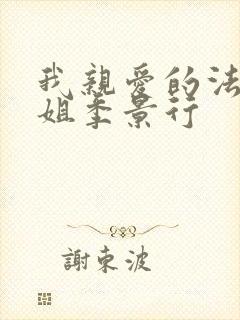 我親愛的法
姐季景行
謝東波